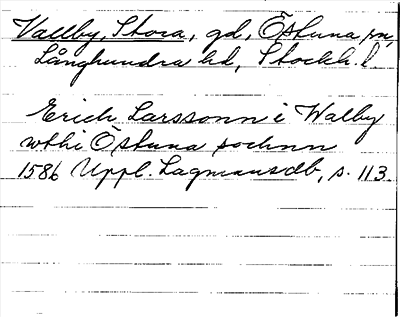 Vallby, Stora, gd, Östuna sn,
Långhundra hd, Stockh. l
Erich Larssonn i Walby
wthi Östuna sochnn
1586 Uppl. Lagmansdb, s. 113